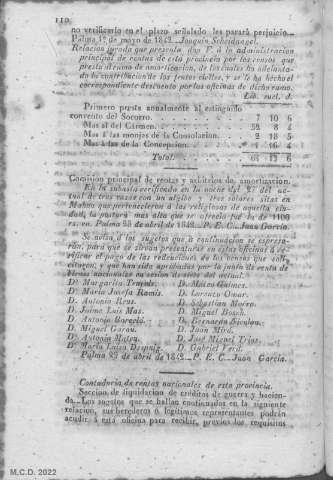 110
no verificarlo en el plazo señalado les parará perjuicio.
Palma 1º de mayo de 1842. Joaquin Scheidnagel.
Relacion jurada que presenta don V. á la administracion
principal de rentas de esta provincia por los censos que
presta al ramo de amortizacion, de los cuales ha adelanta-
do la contribucion de los frutos civiles, y se le ha hecho el
correspondiente descuento por las oficinas de dicho ramo.
Lib. suel. J.
Primero presta anualmente al estinguido
convento del Socorro. 7 10 6
Mas al del Cármen. 8 4
Mas á las monjas de la Consolacion. 2 18 5
Mas á las de la Concepcion. 16 4
Total. 6
Comision principal de rentas y arbitrios de amortizacion.
En la subasta verificada en la noche del 27 del ac-
tual de tres casas con un algibe y tres solares sitas en
Mahon que pertenecieron á las religiosas de aquella ciu-
dad, la postura mas alta que se ofreció fué la de 1100
rs. vn. Palma 28 abril de 1842. P. E. C. Juan García.
Se avisa á los sugetos que á continuacion se espre-
sarán, para que se sirvan presentarse en estas oficinas á ve-
rificar el pago de las redenciones de los censos que soli-
citaron, y que han sido aprobadas por la junta de venta de
bienes nacionales en sesion de del actual.
Dª Margarita D. Mateo Guimes.
Dª María Josefa Ramis. D. Lorenzo Omar.
D. Antonio Reus. D. Sebastian
D. Jaime Luis Mas. D. Miguel Bosch.
D. Antonio Barceló. D. Bernardo Nicolau.
D. Miguel Garau. D. Juan Moró.
D. Antonio Mateu. D. José Miguel Trias.
Dª María Luisa Despuig. D. Gabriel Verd.
Palma 29 de abril de 1842. P. E. C. Juan García.
Contaduría de rentas nacionales de esta provincia.
Seccion de liquidacion de créditos de guerra y hacien-
da. Los sugetos que se hallan continuados en la siguiente
relacion, sus herederos ó legítimos representantes podrán
acudir á esta oficina para recibir, previos los requisitos
M.C.D. 2022